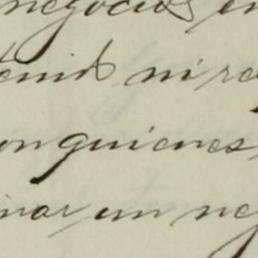 negocios en
tenido ni re
on quienes
inar un neg